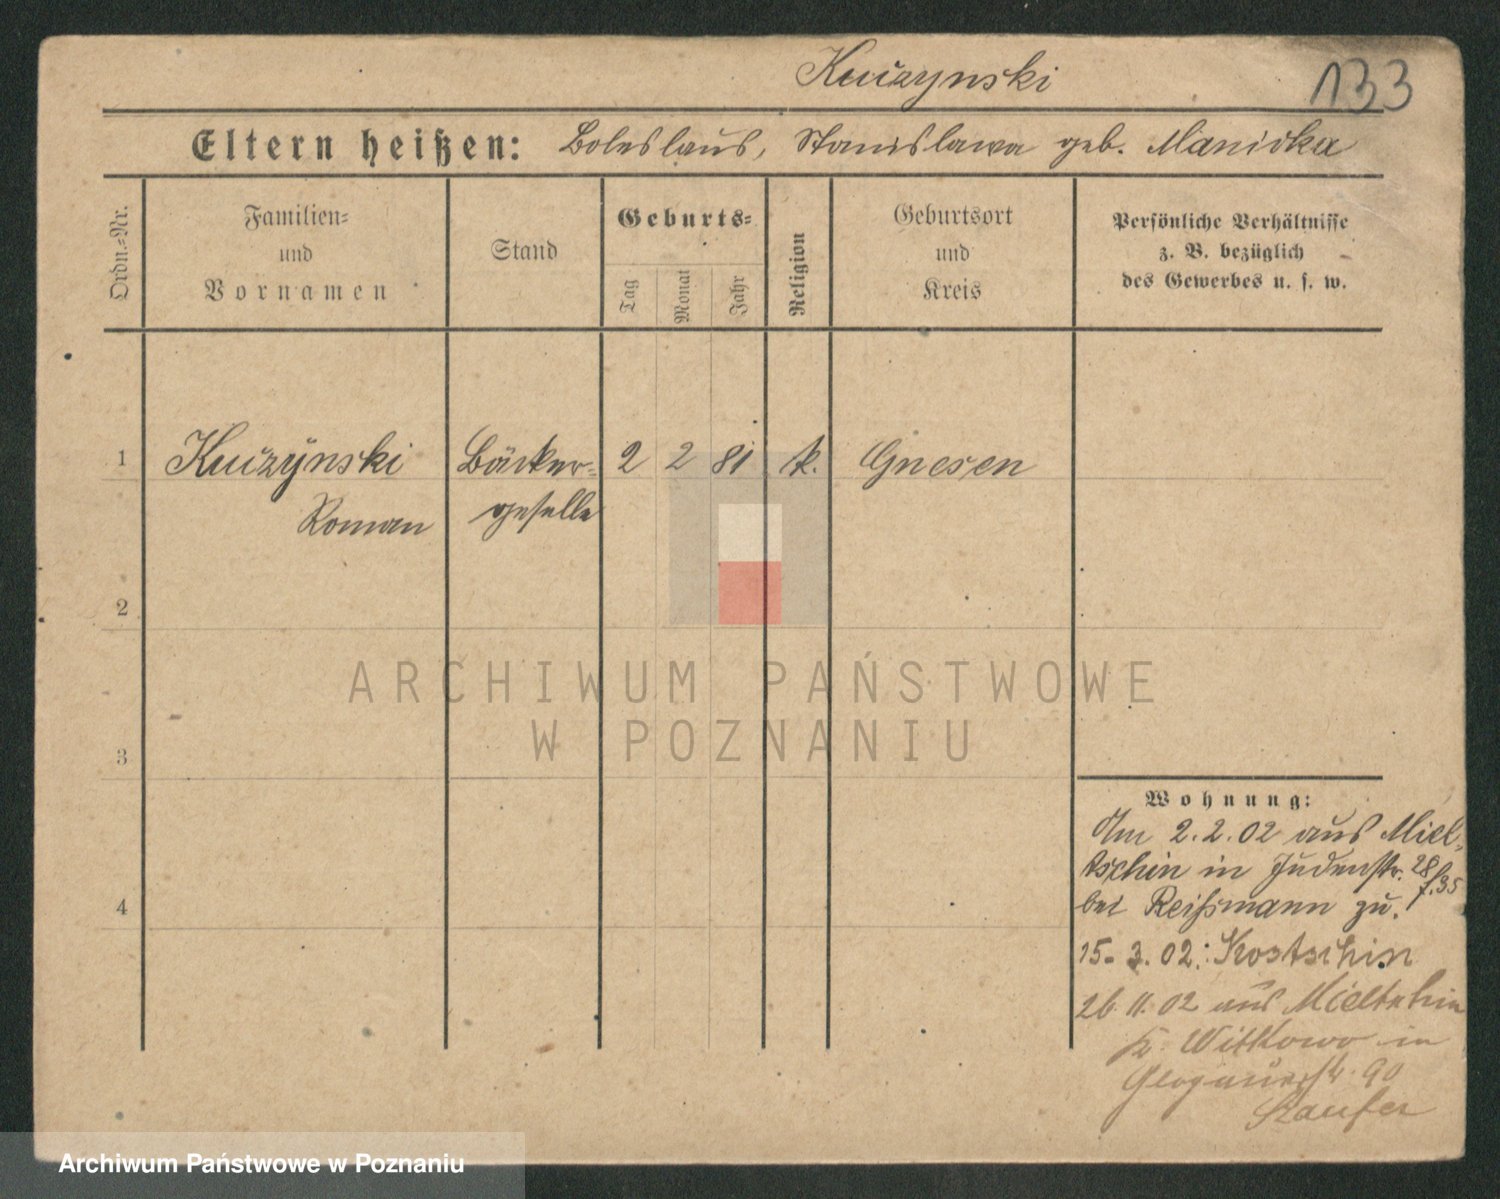 Kuczynski 133
Eltern heißen: Boleslaus, Stanislawa geb. Manicka
Ordn.-Nr.
Familien- und Vornamen
Stand
Geburts-
Tag
Monat
Jahr
Religion
Geburtsort und Kreis
Persönliche Verhältnisse
z. B. bezüglich
des Gewerbes u. s. w.
1 Kuczynski Bäcker- 2 2 81 k. Gnesen
Roman geselle
2
3
4
ARCHIWUM PAŃSTWOWE
W POZNANIU
Wohnung:
Am 2.2.02 aus Miel-
tschin in Judenstr. 28
bei Reißmann zu.
15.3.02: Kostschin
26.11.02 aus Mieltschin
Kr. Witkowo in
Glogauerstr. 90
Archiwum Państwowe w Poznaniu